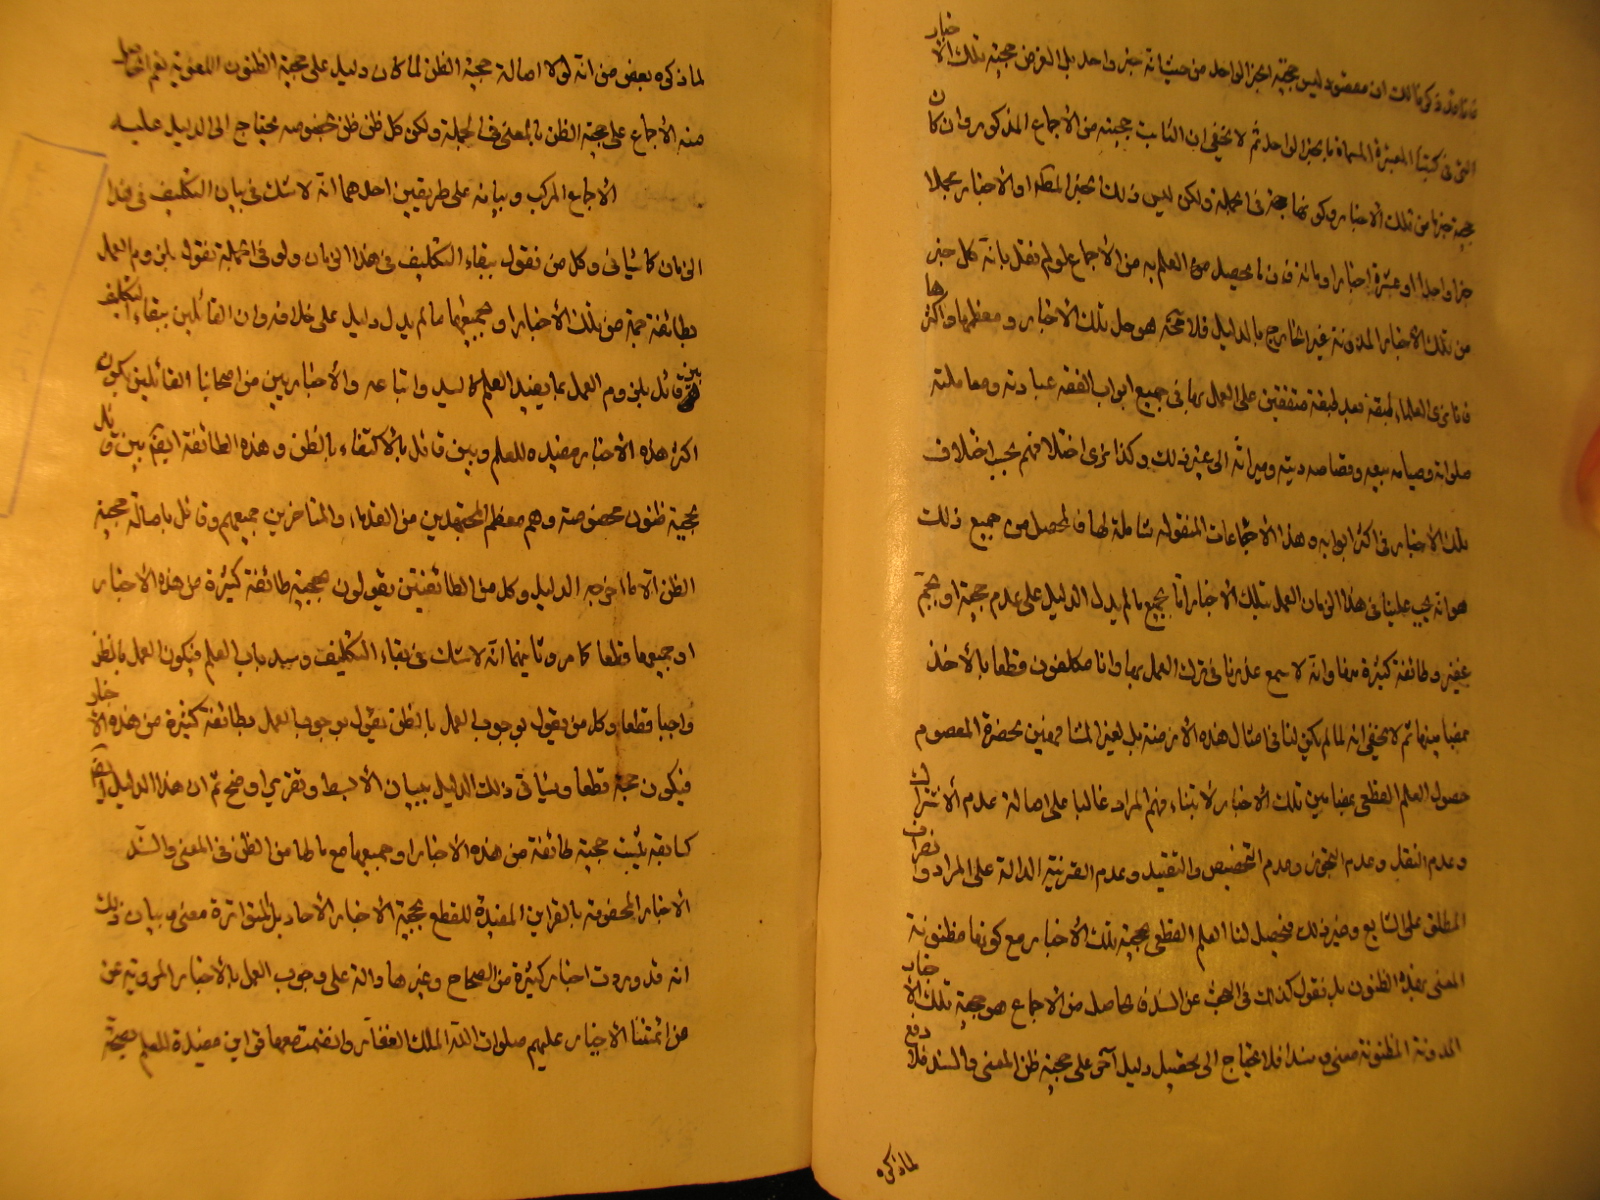 مقصوده ليس حجية الخبر الواحد من حيث انه خبر واحد بل الغرض حجية تلك الاخبار
التى فى كتبنا المعتبرة المسماة بالخبر الواحد ثم لا يخفى ان الثابت حجيته من الاجماع المذكور وان كان
حجية خبر ما من تلك الاخبار وكونها حجة فى الجملة ولكن ليس ذلك او الاخبار مجملا
خبرا واحدا او عشرة اخبار او مائة فان ما يحصل العلم به من الاجماع ولو لم نقل بانه كل خبر
من تلك الاخبار المدونة غير الخارج بالدليل فلا محة هو جل تلك الاخبار ومعظمها واكثرها
فانا نرى العلماء طبقة بعد طبقة متفقين على العمل بها فى جميع ابواب الفقه عباداته ومعاملاته
صلواته وصيامه بيعه وقصاصه ديته وميراثه الى غير ذلك وكذا نرى اختلافهم بحسب اختلاف
تلك الاخبار فى اكثر ابوابه وهذا الاجماعات المنقولة شاملة لها فالمحصل من جميع ذلك
هو انه يجب علينا فى هذا الزمان العمل بتلك الاخبار اما بجميع ما لم يدل الدليل على عدم حجيته او بجم
غفير وطائفة كثيرة منها وانه لا يسمع عذرنا فى ترك العمل بها وانا مكلفون قطعا بالاخذ
بمضامينها ثم لا يخفى انه لما لم يكن لنا فى امثال هذه الازمنة بل لغير المشافهين بحضرة المعصوم
حصول العلم القطعى بمضامين تلك الاخبار لابتناء فهم المراد غالبا على اصالة عدم الاشتراك
وعدم النقل وعدم التجوز وعدم التخصيص والتقييد وعدم القرينة الدالة على المراد وانصراف
المطلق على الشايع وغير ذلك فيحصل لنا العلم القطعى بحجية تلك الاخبار مع كونها مظنونة
المعنى بهذه الظنون بل نقول كذلك فى البحث عن السند فالحاصل من الاجماع هو حجية تلك الاخبار
المدونة المظنونة معنى وسندا فلا نحتاج الى تحصيل دليل آخر على حجية ظن المعنى والسند فلا دفع
لما ذكره
لما ذكره بعض من انه لولا اصالة حجية الظن لما كان دليل على حجية الظنون اللغوية نعم
منه الاجماع على حجية الظن بالمعنى فى الجملة ولكن كل ظن ظن بخصوصه محتاج الى الدليل عليه
الاجماع المركب وبيانه على طريقين احدهما انه لا شك فى بيان التكليف فى هذا
الزمان كما سياتى وكل من نقول ببقاء التكليف فى هذا الزمان ولو فى الجملة نقول بلزوم العمل
بطائفة جمة من تلك الاخبار او جميعها ما لم يدل دليل على خلافه وان القائلين ببقاء التكليف
بين قائل بلزوم العمل بما يفيد العلم كالسيد واتباعه والاخباريين من اصحابنا القائلين بكون
اكثر هذه الاخبار مفيده للعلم وبين قائل بالاكتفاء بالظن وهذه الطائفة ايضا بين قائل
بحجية ظنون مخصوصة وهم معظم المجتهدين من القدماء والمتاخرين جميعهم وقائل باصالة حجية
الظن الا ما اخرجه الدليل وكل من الطائفتين يقولون بحجية طائفة كثيرة من هذه الاخبار
او جميعها قطعا كما مر وثانيهما انه لا شك فى بقاء التكليف وسد باب العلم فيكون العمل بالظن
واجبا قطعا وكل من يقول بوجوب العمل بالظن يقول بوجوب العمل بطائفة كثيرة من هذه الاخبار
فيكون حجة قطعا وسياتى ذلك الدليل ببيان الابسط وتقرير اوضح ثم ان هذا الدليل ايضا
كسابقه يثبت حجية طائفة من هذه الاخبار او جميعها مع ما لها من الظن فى المعنى والسند
الاخبار المحفوفة بالقراين المفيدة للقطع بحجية الاخبار الاحاد بل المتواترة معنى وبيان ذلك
انه قد وردت اخبار كثيرة من الصحاح وغيرها دالة على وجوب العمل بالاخبار المروية عن
من ائمتنا الاخيار عليهم صلوات الله الملك الغفار وانضمت معها قراين مفيدة للعلم بحجية